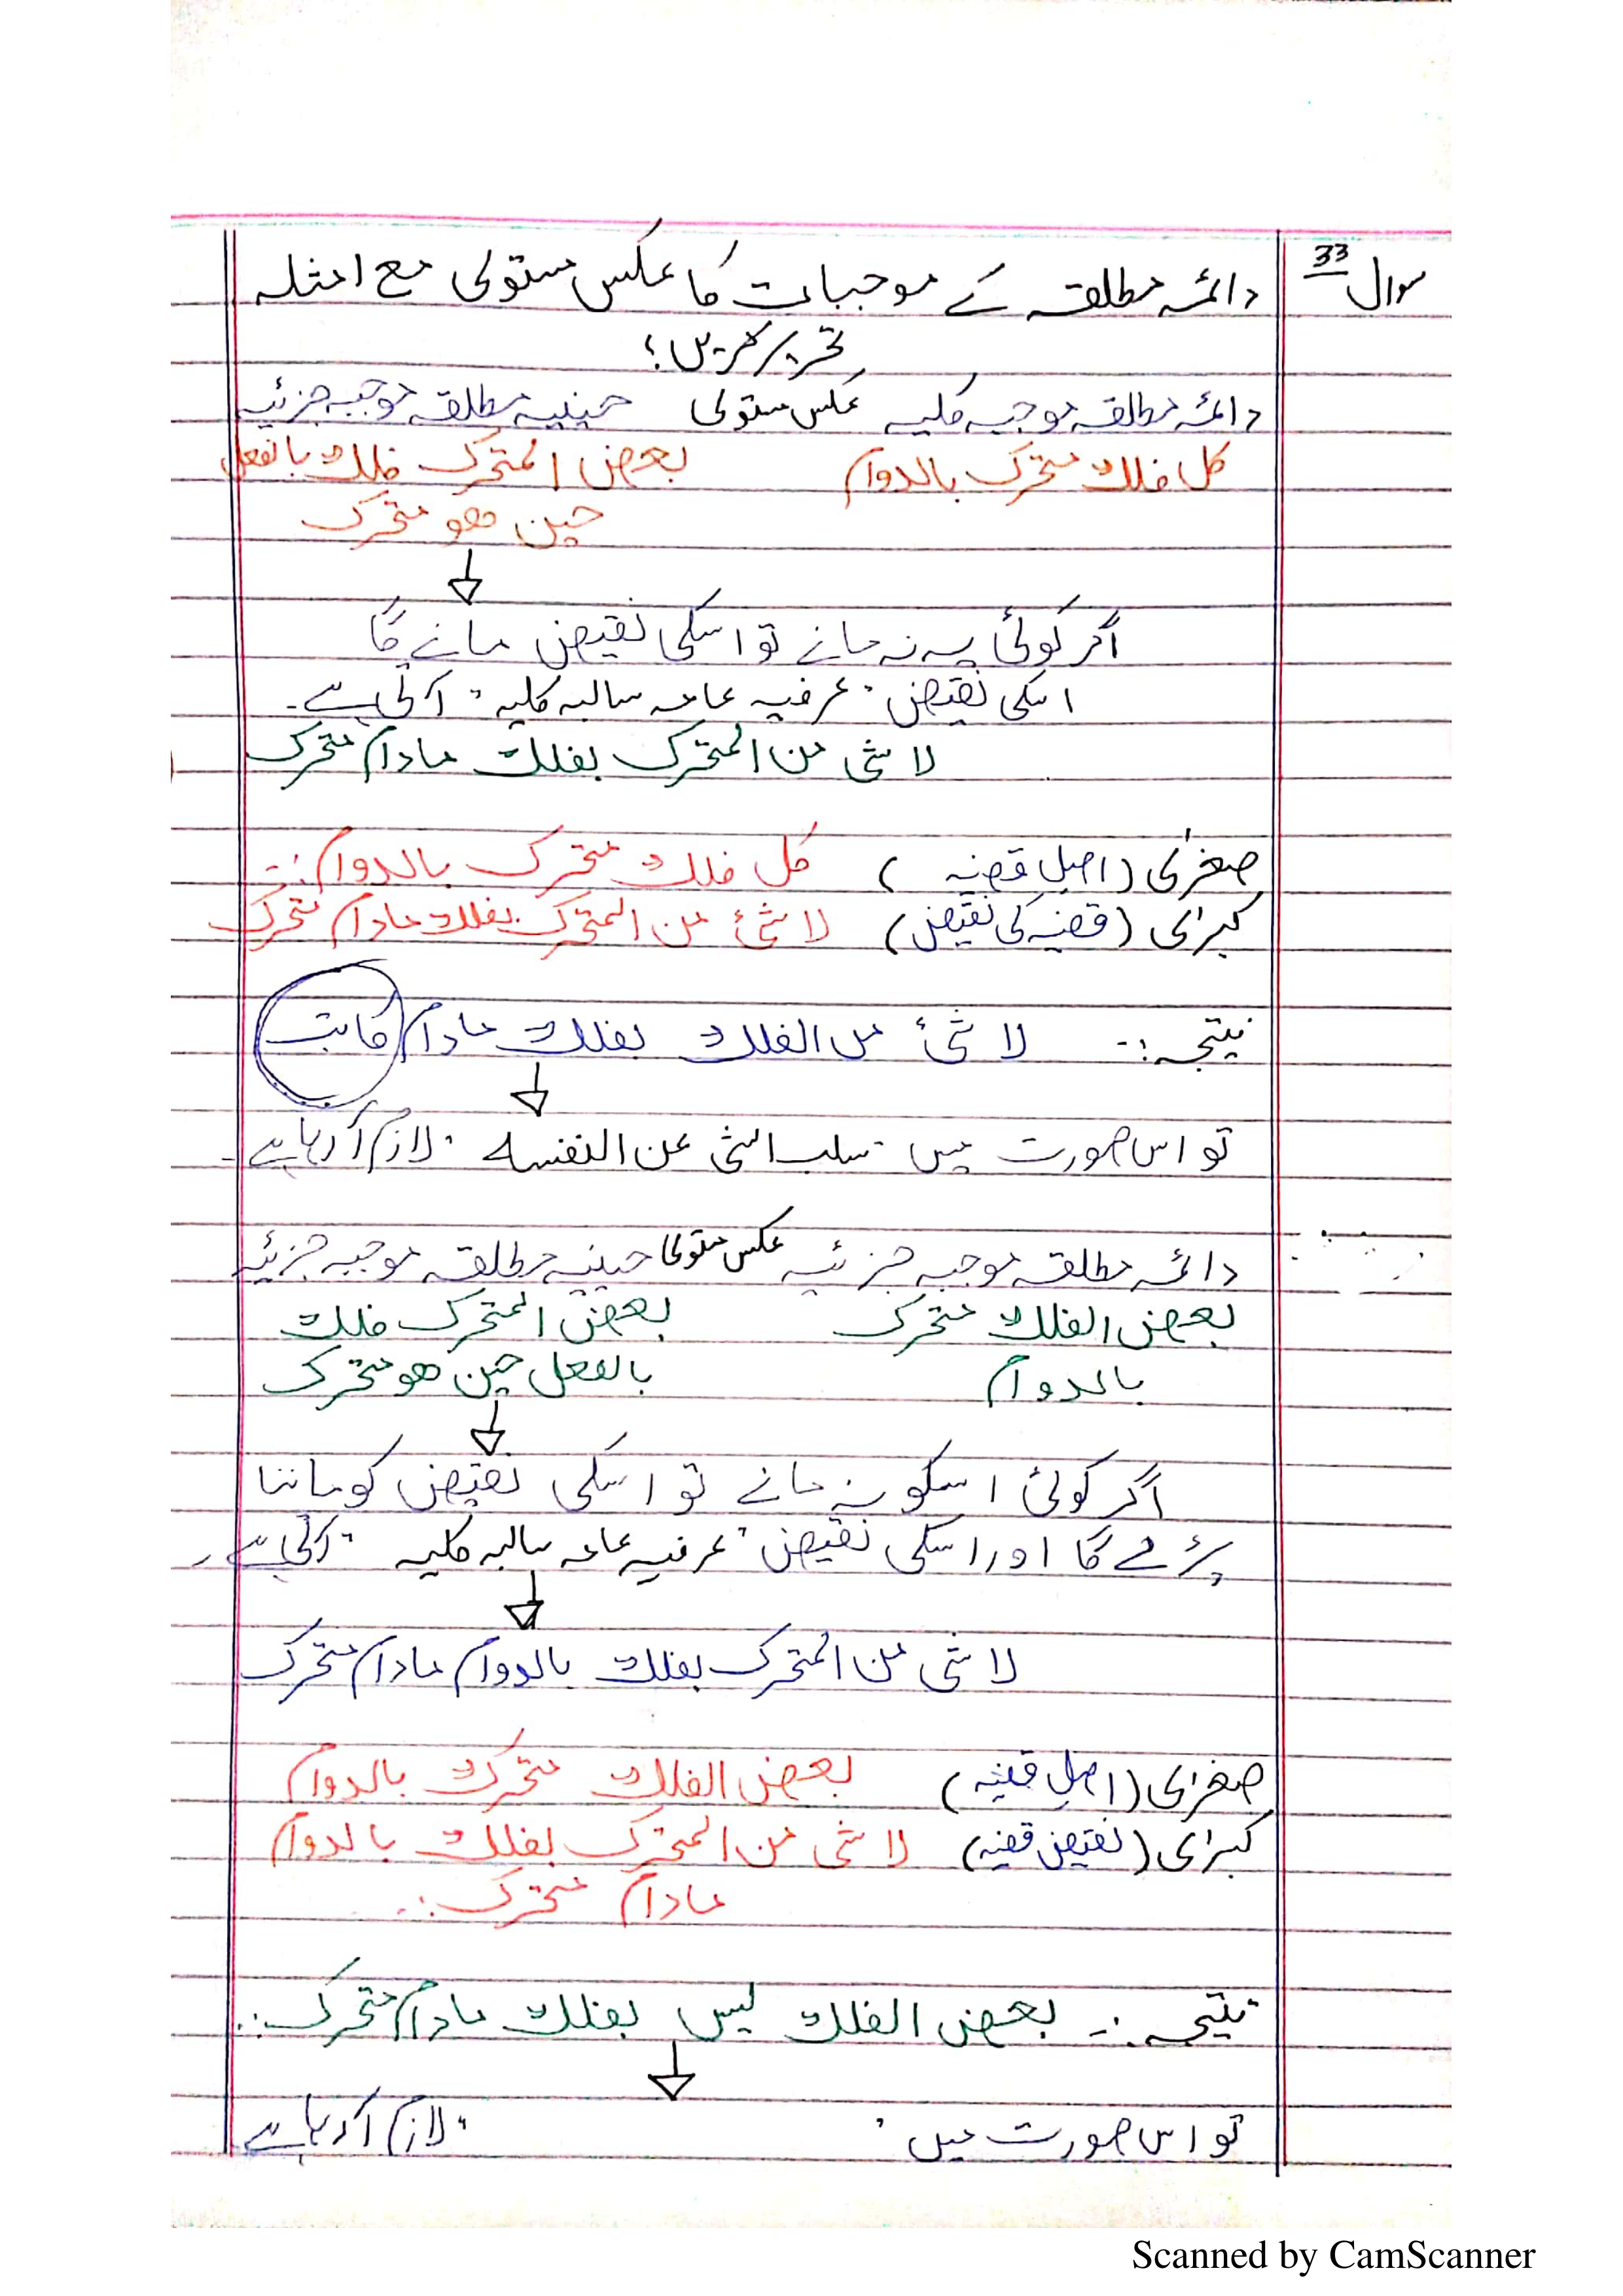 سوال 33
دائمہ مطلقہ کے موجبات کا عکس مستوی مع امثلہ
تحریر کریں؟
دائمہ مطلقہ موجبہ کلیہ عکس مستوی حینیہ مطلقہ موجبہ جزئیہ
کل فلک متحرک بالدوام بعض المتحرک فلک بالفعل
حین ھو متحرک
اگر کوئی یہ نہ مانے تو اسکی نقیض مانے گا
اسکی نقیض "عرفیہ عامہ سالبہ کلیہ" آتی ہے۔
لا شئ من المتحرک بفلک مادام متحرک
صغرٰی (اصل قضیہ) کل فلک متحرک بالدوام :۔
کبرٰی (قضیہ کی نقیض) لا شئ من المتحرک بفلک مادام متحرک
نتیجہ :۔ لا شئ من الفلک بفلک مادام کاتب
تو اس صورت میں "سلب الشئ عن النفسہ" لازم آ رہا ہے۔
دائمہ مطلقہ موجبہ جزئیہ عکس مستوی حینیہ مطلقہ موجبہ جزئیہ
بعض الفلک متحرک بعض المتحرک فلک
بالدوام بالفعل حین ھو متحرک
اگر کوئی اسکو نہ مانے تو اسکی نقیض کو ماننا
پڑے گا اور اسکی نقیض "عرفیہ عامہ سالبہ کلیہ" آتی ہے۔
لا شئ من المتحرک بفلک بالدوام مادام متحرک
صغرٰی (اصل قضیہ) بعض الفلک متحرک بالدوام
کبرٰی (نقیض قضیہ) لا شئ من المتحرک بفلک بالدوام
مادام متحرک :۔
نتیجہ :۔ بعض الفلک لیس بفلک مادام متحرک :۔
تو اس صورت میں " " لازم آ رہا ہے
Scanned by CamScanner